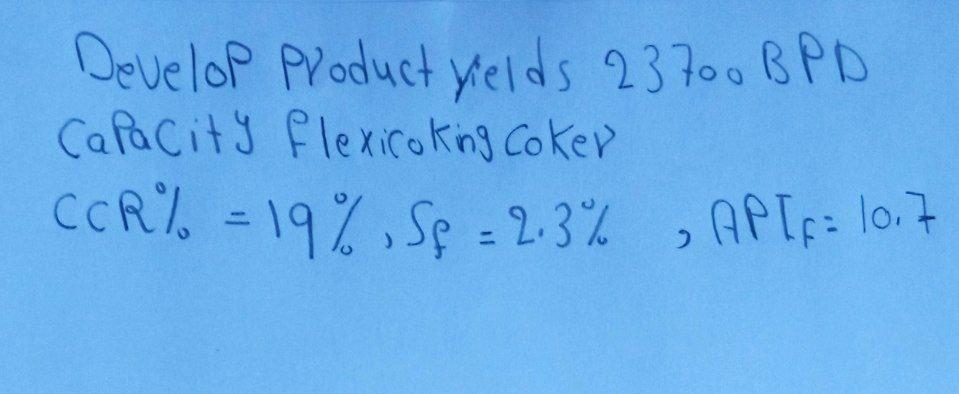 Develop Product yields 23700 BPD
Capacity flexicoking Coker
CCR% = 19%, Sf = 2.3% , APIF= 10.7